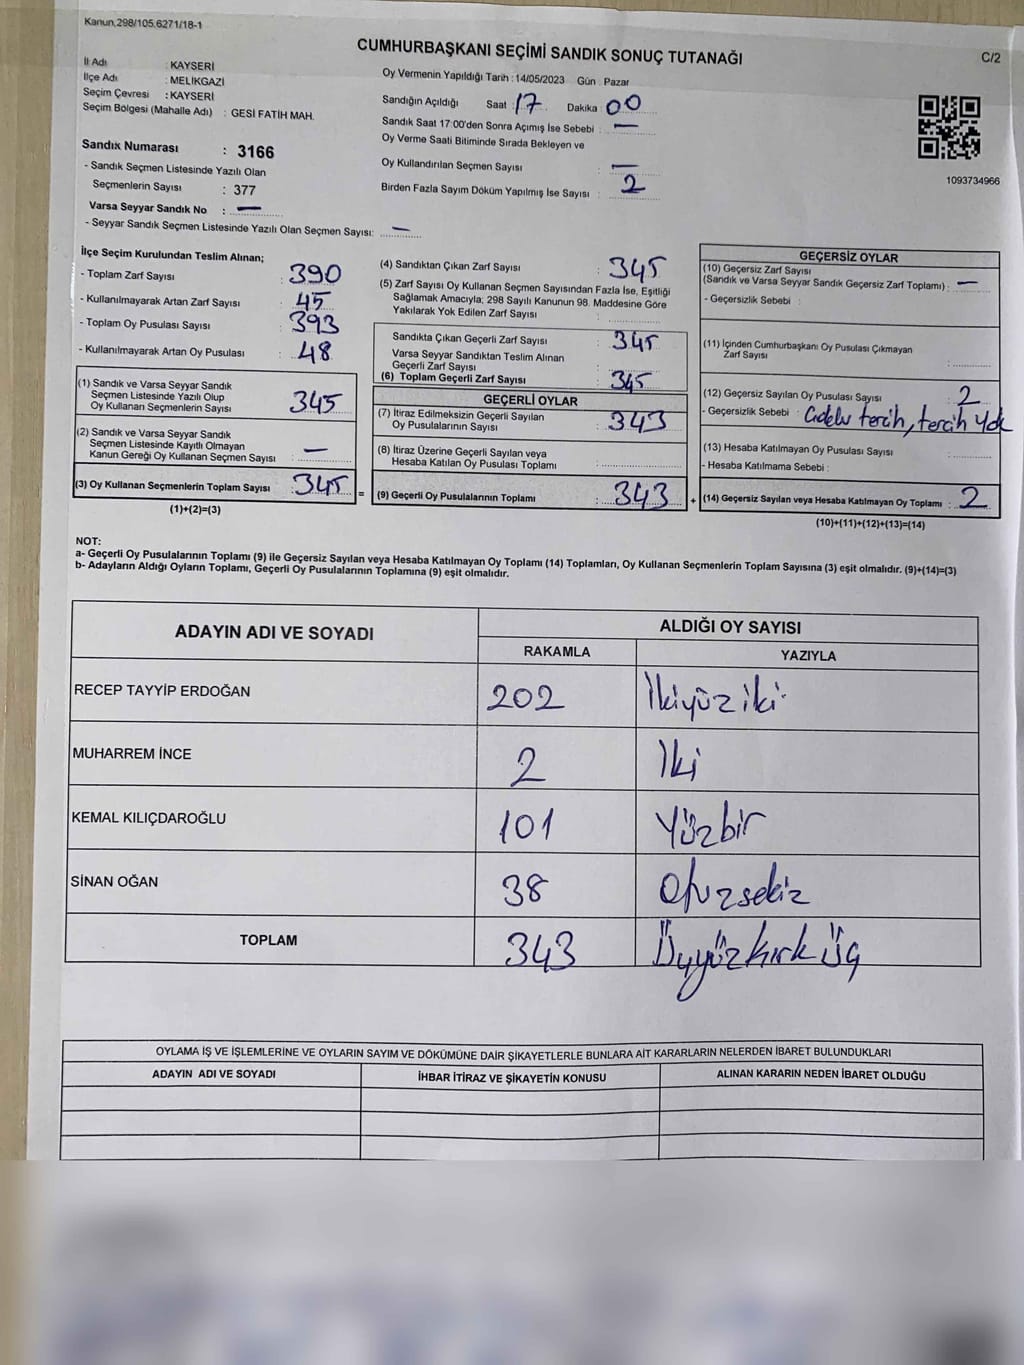 Kanun,298/105,6271/18-1
CUMHURBAŞKANI SEÇİMİ SANDIK SONUÇ TUTANAĞI
C/2
İl Adı : KAYSERİ
İlçe Adı : MELİKGAZİ
Seçim Çevresi : KAYSERİ
Seçim Bölgesi (Mahalle Adı) : GESİ FATİH MAH.
Sandık Numarası : 3166
- Sandık Seçmen Listesinde Yazılı Olan
Seçmenlerin Sayısı : 377
Varsa Seyyar Sandık No : —
- Seyyar Sandık Seçmen Listesinde Yazılı Olan Seçmen Sayısı: —
Oy Vermenin Yapıldığı Tarih : 14/05/2023 Gün : Pazar
Sandığın Açıldığı Saat : 17 Dakika : 00
Sandık Saat 17:00'den Sonra Açımış İse Sebebi : —
Oy Verme Saati Bitiminde Sırada Bekleyen ve
Oy Kullandırılan Seçmen Sayısı : —
Birden Fazla Sayım Döküm Yapılmış İse Sayısı : 2
1093734966
İlçe Seçim Kurulundan Teslim Alınan;
- Toplam Zarf Sayısı : 390
- Kullanılmayarak Artan Zarf Sayısı : 45
- Toplam Oy Pusulası Sayısı : 393
- Kullanılmayarak Artan Oy Pusulası : 48
(1) Sandık ve Varsa Seyyar Sandık
Seçmen Listesinde Yazılı Olup
Oy Kullanan Seçmenlerin Sayısı : 345
(2) Sandık ve Varsa Seyyar Sandık
Seçmen Listesinde Kayıtlı Olmayan
Kanun Gereği Oy Kullanan Seçmen Sayısı : —
(3) Oy Kullanan Seçmenlerin Toplam Sayısı : 345 =
(1)+(2)=(3)
(4) Sandıktan Çıkan Zarf Sayısı : 345
(5) Zarf Sayısı Oy Kullanan Seçmen Sayısından Fazla İse, Eşitliği
Sağlamak Amacıyla; 298 Sayılı Kanunun 98. Maddesine Göre
Yakılarak Yok Edilen Zarf Sayısı :
Sandıkta Çıkan Geçerli Zarf Sayısı : 345
Varsa Seyyar Sandıktan Teslim Alınan
Geçerli Zarf Sayısı :
(6) Toplam Geçerli Zarf Sayısı : 345
GEÇERLİ OYLAR
(7) İtiraz Edilmeksizin Geçerli Sayılan
Oy Pusulalarının Sayısı : 343
(8) İtiraz Üzerine Geçerli Sayılan veya
Hesaba Katılan Oy Pusulası Toplamı :
(9) Geçerli Oy Pusulalarının Toplamı : 343 +
GEÇERSİZ OYLAR
(10) Geçersiz Zarf Sayısı
(Sandık ve Varsa Seyyar Sandık Geçersiz Zarf Toplamı) : —
- Geçersizlik Sebebi :
(11) İçinden Cumhurbaşkanı Oy Pusulası Çıkmayan
Zarf Sayısı :
(12) Geçersiz Sayılan Oy Pusulası Sayısı : 2
- Geçersizlik Sebebi : tercih, tercih yok
(13) Hesaba Katılmayan Oy Pusulası Sayısı :
- Hesaba Katılmama Sebebi :
(14) Geçersiz Sayılan veya Hesaba Katılmayan Oy Toplamı : 2
(10)+(11)+(12)+(13)=(14)
NOT:
a- Geçerli Oy Pusulalarının Toplamı (9) ile Geçersiz Sayılan veya Hesaba Katılmayan Oy Toplamı (14) Toplamları, Oy Kullanan Seçmenlerin Toplam Sayısına (3) eşit olmalıdır. (9)+(14)=(3)
b- Adayların Aldığı Oyların Toplamı, Geçerli Oy Pusulalarının Toplamına (9) eşit olmalıdır.
ADAYIN ADI VE SOYADI ALDIĞI OY SAYISI
RAKAMLA YAZIYLA
RECEP TAYYİP ERDOĞAN 202 İkiyüz iki
MUHARREM İNCE 2 İki
KEMAL KILIÇDAROĞLU 101 Yüzbir
SİNAN OĞAN 38 Otuzsekiz
TOPLAM 343 Üçyüzkırk üç
OYLAMA İŞ VE İŞLEMLERİNE VE OYLARIN SAYIM VE DÖKÜMÜNE DAİR ŞİKAYETLERLE BUNLARA AİT KARARLARIN NELERDEN İBARET BULUNDUKLARI
ADAYIN ADI VE SOYADI İHBAR İTİRAZ VE ŞİKAYETİN KONUSU ALINAN KARARIN NEDEN İBARET OLDUĞU